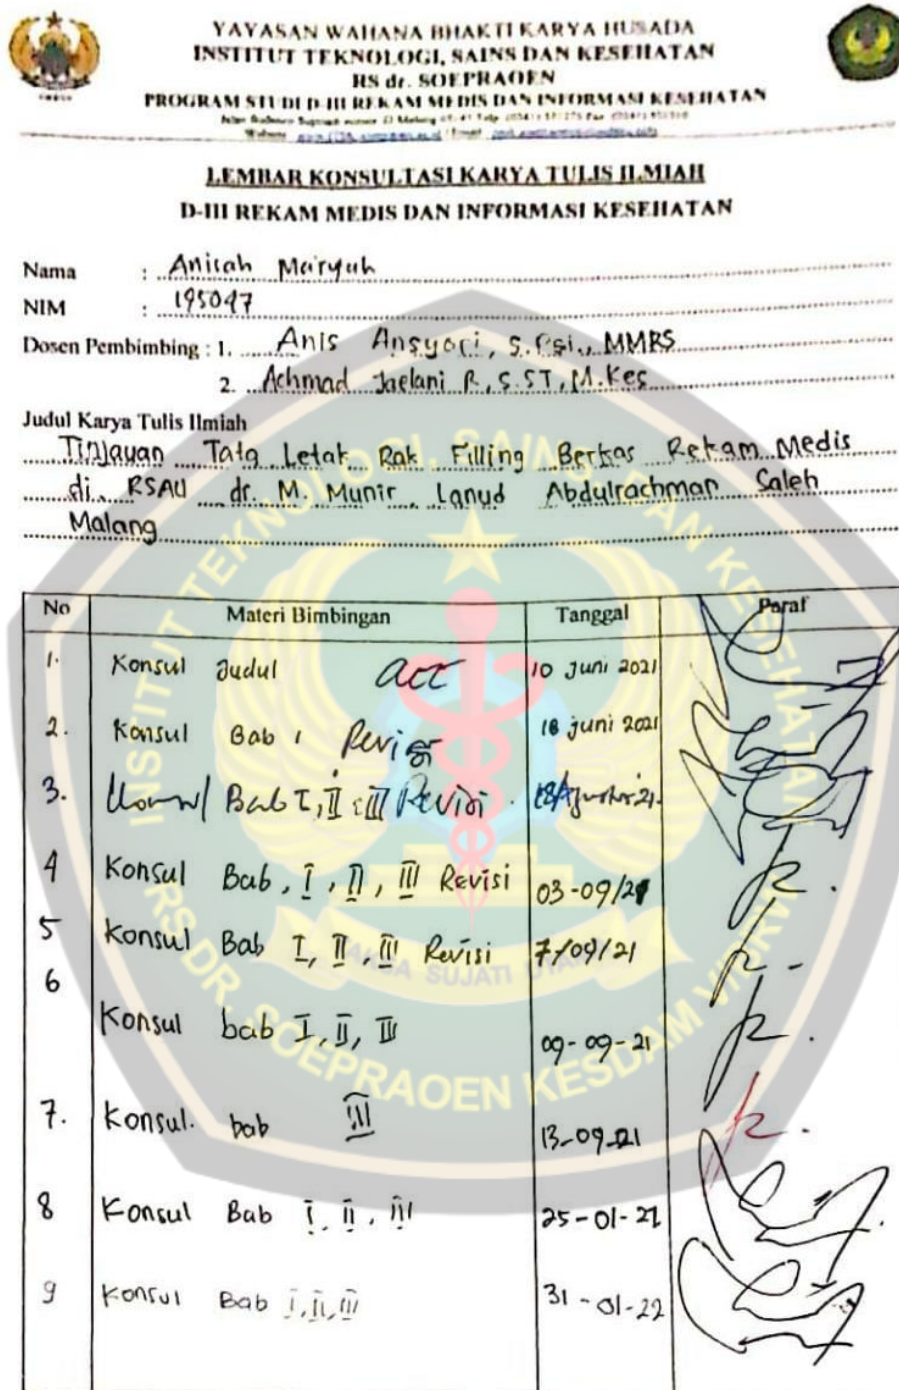 YAYASAN WAHANA BHAKTI KARYA HUSADA
INSTITUT TEKNOLOGI, SAINS DAN KESEHATAN
RS dr. SOEPRAOEN
PROGRAM STUDI D-III REKAM MEDIS DAN INFORMASI KESEHATAN
LEMBAR KONSULTASI KARYA TULIS ILMIAH
D-III REKAM MEDIS DAN INFORMASI KESEHATAN
Nama : Anisah Mar'yah
NIM : 195047
Dosen Pembimbing : 1. Anis Ansyori, S.Psi., MMRS
2. Achmad Jaelani R, S.ST, M.Kes
Judul Karya Tulis Ilmiah
Tinjauan Tata Letak Rak Filling Berkas Rekam Medis
di RSAU dr. M. Munir Lanud Abdulrachman Saleh
Malang
No Materi Bimbingan Tanggal Paraf
1. Konsul Judul acc 10 Juni 2021
2. Konsul Bab 1 Revisi 18 juni 2021
3. Konsul Bab I, II, III Revisi Agustus 21.
4 Konsul Bab, I, II, III Revisi 03-09/21
5 Konsul Bab I, II, III Revisi 7/09/21
6 Konsul bab I, II, III 09-09-21
7. Konsul. bab III 13-09-21
8 Konsul Bab I, II, III 25-01-22
9 Konsul Bab I, II, III 31-01-22
INSTITUT TEKNOLOGI, SAINS, DAN KESEHATAN
RS DR. SOEPRAOEN KESDAM V/BRW